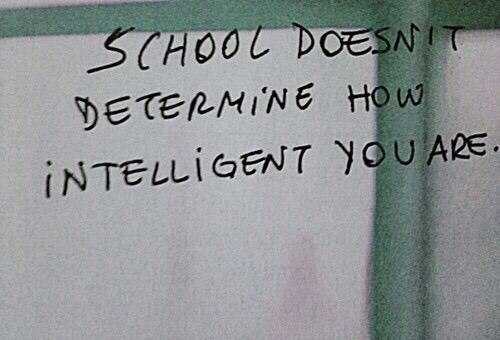 SCHOOL DOESN'T
DETERMINE HOW
INTELLIGENT YOU ARE.